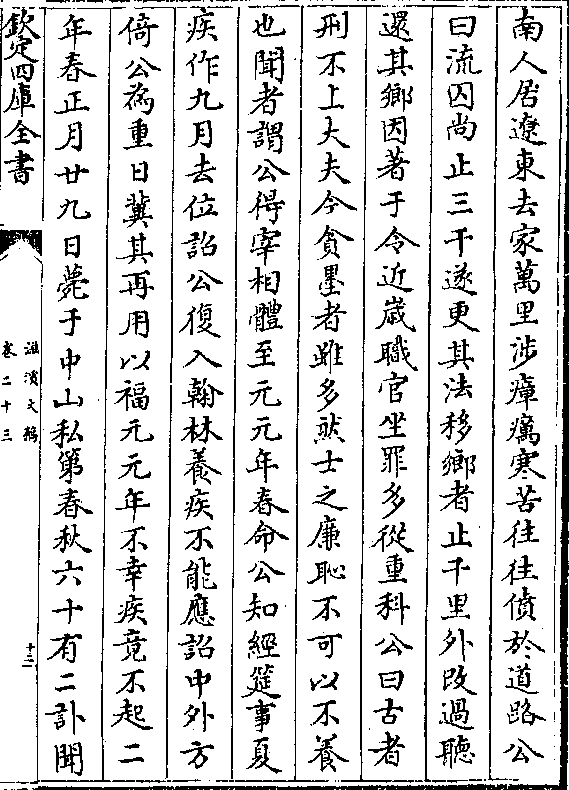 南人居遼東去家萬里涉瘴癘寒苦往往僨於道路公
曰流囚尚止三千遂更其法移鄉者止千里外改過聽
還其鄉因著于令近歲職官坐罪多從重科公曰古者
刑不上大夫今貪墨者雖多然士之廉恥不可以不養
也聞者謂公得宰相體至元元年春命公知經筵事夏
疾作九月去位詔公復入翰林養疾不能應詔中外方
倚公為重日冀其再用以福元元年不幸疾竟不起二
年春正月廿九日薨于中山私第春秋六十有二訃聞
欽定四庫全書
滋溪文稿
卷二十三
十三